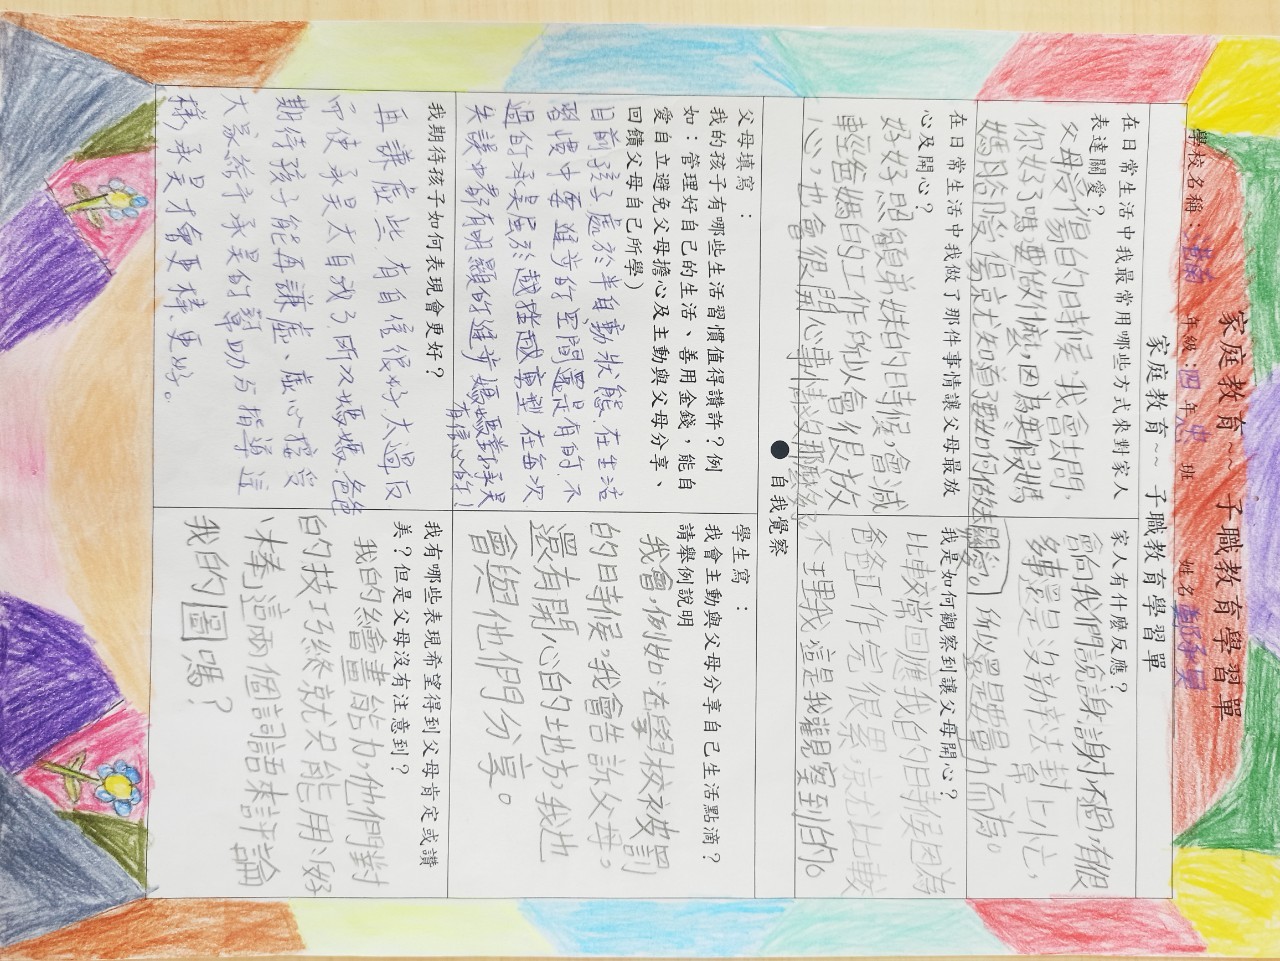 家庭教育~~ 子職教育學習單
學校名稱： 年級：四 年 忠 班 姓名
家庭教育~~ 子職教育學習單
在日常生活中我最常用哪些方式來對家人
表達關愛？
父母受傷的時候，我會去問，
你好了嗎要做什麼，因為要假媽
媽哈險受傷就知道了要如何做去關愛。
家人有什麼反應？
會向我們說謝謝不過有很
練還是沒辦法幫上忙，
所以還是要量力而為。
在日常生活中我做了那件事情讓父母最放
心及開心？
好好照顧弟妹的時候，會減
輕爸媽的工作所以會很放
心，也會很開心事情沒那麼多
我是如何觀察到讓父母開心？
比較常回應我的時候因為
爸爸工作完很累，就比較
不理我這是我觀察到的。
● 自我覺察
父母填寫：
我的孩子有哪些生活習慣值得讚許？例
如：管理好自己的生活、善用金錢，能自
愛自立避免父母擔心及主動與父母分享、
回饋父母自己所學）
目前孩子處於半自動狀態，在生活
習慣中要進步的空間還是有的，不
過的承昊屬於越挫越勇型，在每次
失誤中都有明顯的進步，媽媽對承昊
有信心的！
學生寫：
我會主動與父母分享自己生活點滴？
請舉例說明
我會，例如：在學校被罰
的時候，我會告訴父母，
還有開心的地方，我也
會與他們分享。
我期待孩子如何表現會更好？
再謙虛些，有自信很好，太過反
而使承昊太自我了，所以媽媽、爸爸
期待孩子能再謙虛、虛心接受
大家給予承昊的幫助與指導，這
樣承昊才會更棒、更好。
我有哪些表現希望得到父母肯定或讚
美？但是父母沒有注意到？
我的繪畫能力，他們對
的技巧終就只能用「好
」棒」這兩個詞語來評論
我的圖嗎？